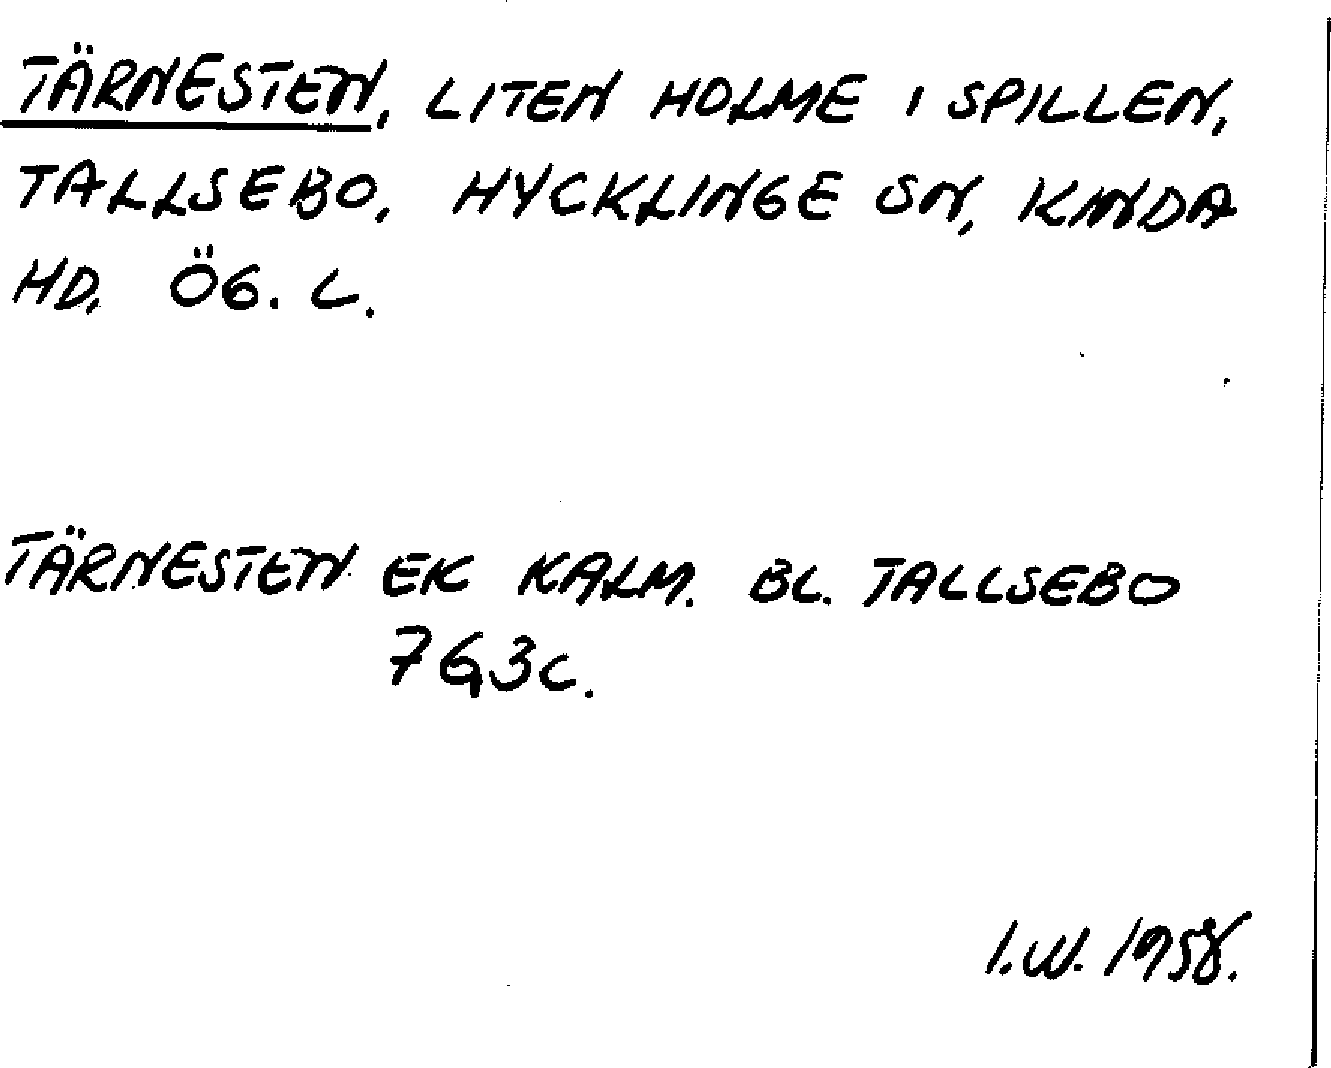 TÄRNESTEN, LITEN HOLME I SPILLEN,
TALLSEBO, HYCKLINGE SN, KINDA
HD, ÖG. L.
TÄRNESTEN EK KALM. BL. TALLSEBO
7G3c.
I.W. 1958.